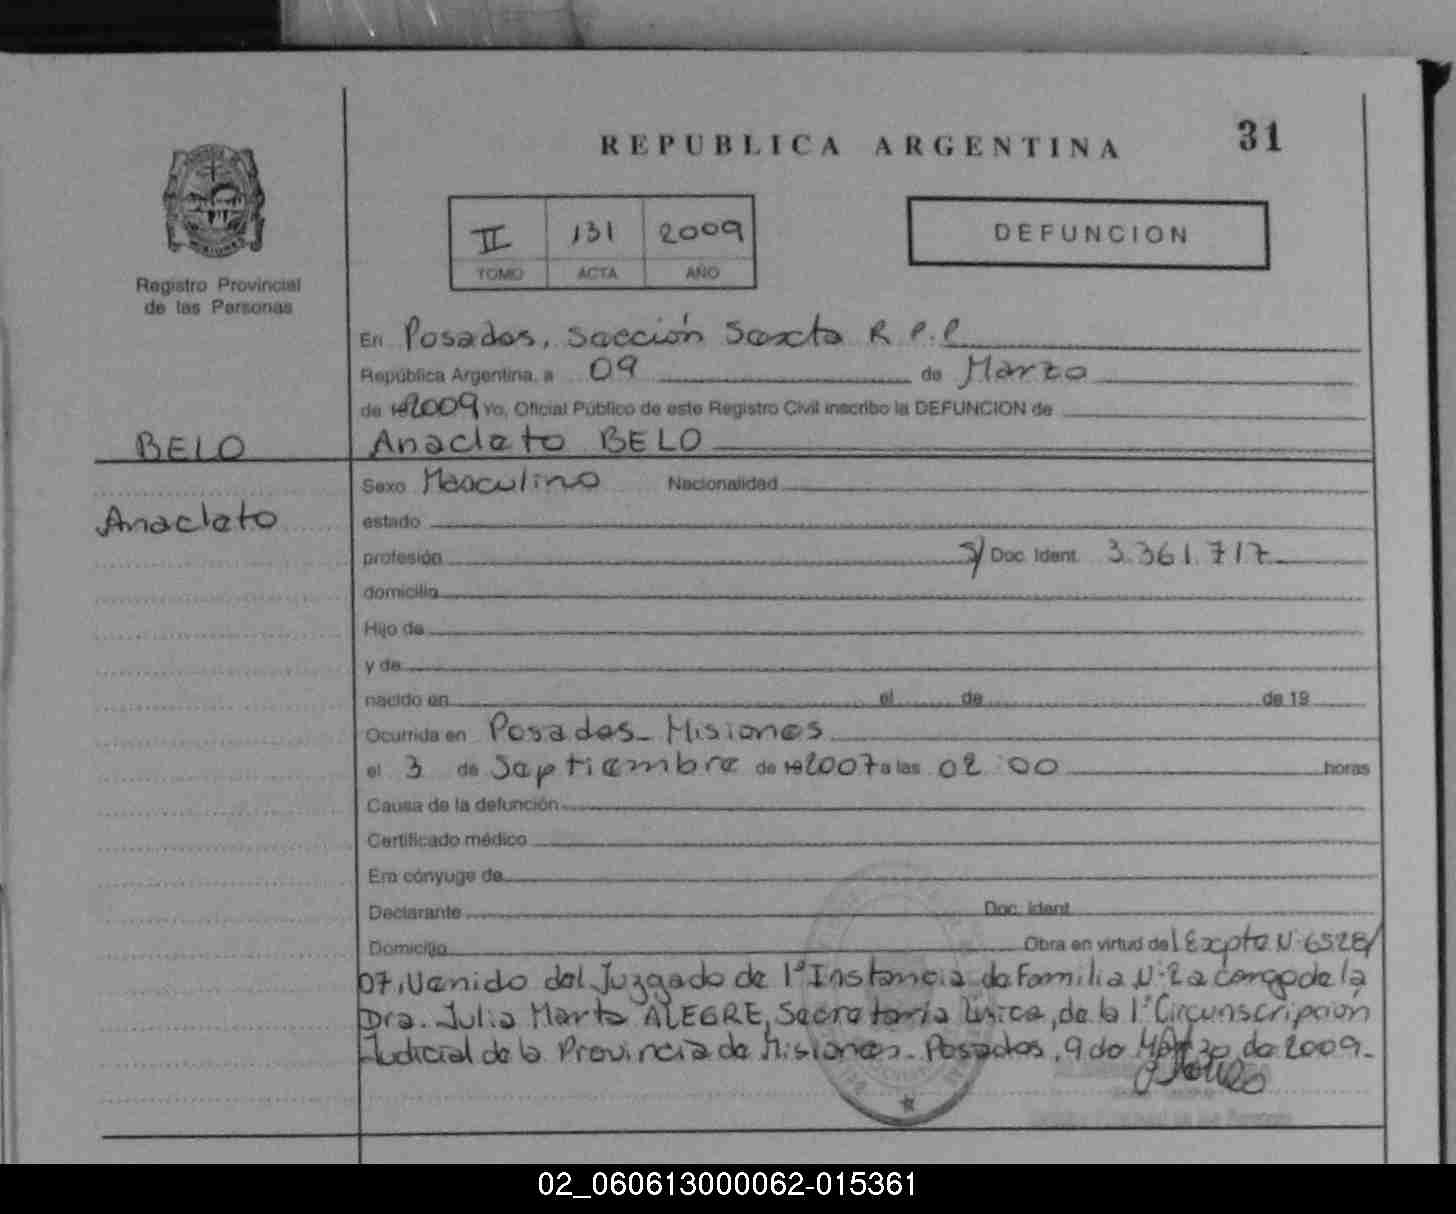 REPUBLICA ARGENTINA
31
II 131 2009
TOMO ACTA AÑO
DEFUNCION
Registro Provincial
de las Personas
En Posadas, Sección Sexta R.P.P.
República Argentina, a 09 de Marzo
de 192009 Yo, Oficial Público de este Registro Civil inscribo la DEFUNCION de
BELO
Anacleto BELO
Anacleto
Sexo Masculino Nacionalidad
estado
profesión S/ Doc. Ident. 3.361.717
domicilio
Hijo de
y de
nacido en el de de 19
Ocurrida en Posadas - Misiones
el 3 de Septiembre de 192007 a las 02:00 horas
Causa de la defunción
Certificado médico
Era cónyuge de
Declarante Doc. Ident.
Domicilio Obra en virtud del Expte N° 6528/
07, Venido del Juzgado de 1ª Instancia de Familia N° 2 a cargo de la
Dra. Julia Marta ALEGRE, Secretaría Única, de la 1ª Circunscripción
Judicial de la Provincia de Misiones. Posadas, 9 de Marzo de 2009.
02_060613000062-015361